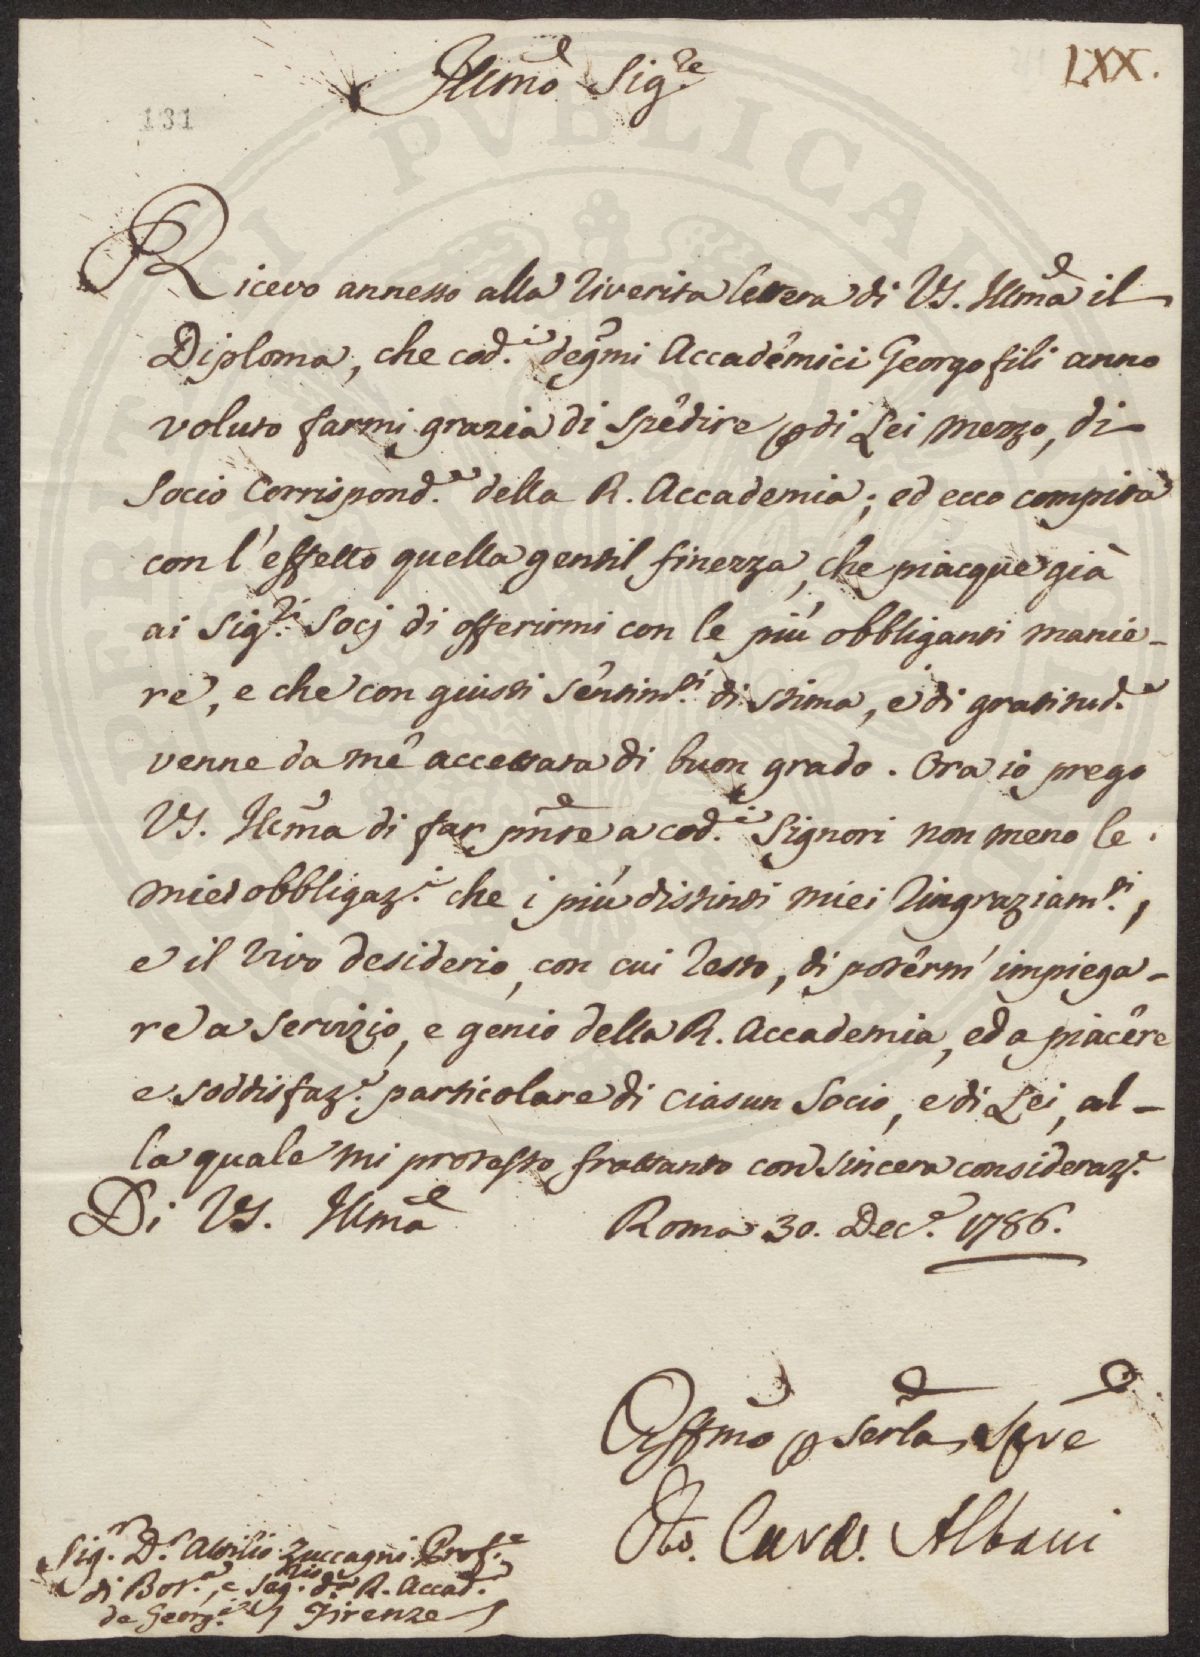 LXX.
Illmo Sig.re
131
PERITI PVBLICAE
Ricevo annesso alla riverita lettera di VS. Illma il
Diploma, che cod.i degmi Accademici Georgofili anno
voluto farmi grazia di spedire p di Lei mezzo, di
Socio Corrispond.e della R. Accademia; ed ecco compita
con l'effetto quella gentil finezza, che piacque già
ai Sig.ri Socj di offerirmi con le più obbliganti manie-
re, e che con giusti sentim.ti di stima, e di gratitud.e
venne da me accettata di buon grado. Ora io prego
VS. Illma di far pnte a cod.i Signori non meno le
mie obbligaz.i che i più distinti miei ringraziam.ti,
e il vivo desiderio, con cui resto, di poterm' impiega-
re a servizio, e genio della R. Accademia, ed a piacere
e soddisfaz.e particolare di ciasun Socio, e di Lei, al-
la quale mi protesto frattanto con sincera consideraz.e
Di VS. Illma
Roma 30. Dec.e 1786.
Affmo p serla spre
Card. Albani
Sig.r D.r Attilio Zuccagni Prof.e
di Bot.a, e Seg.rio d.a R. Accad.a
de Georg.i Firenze